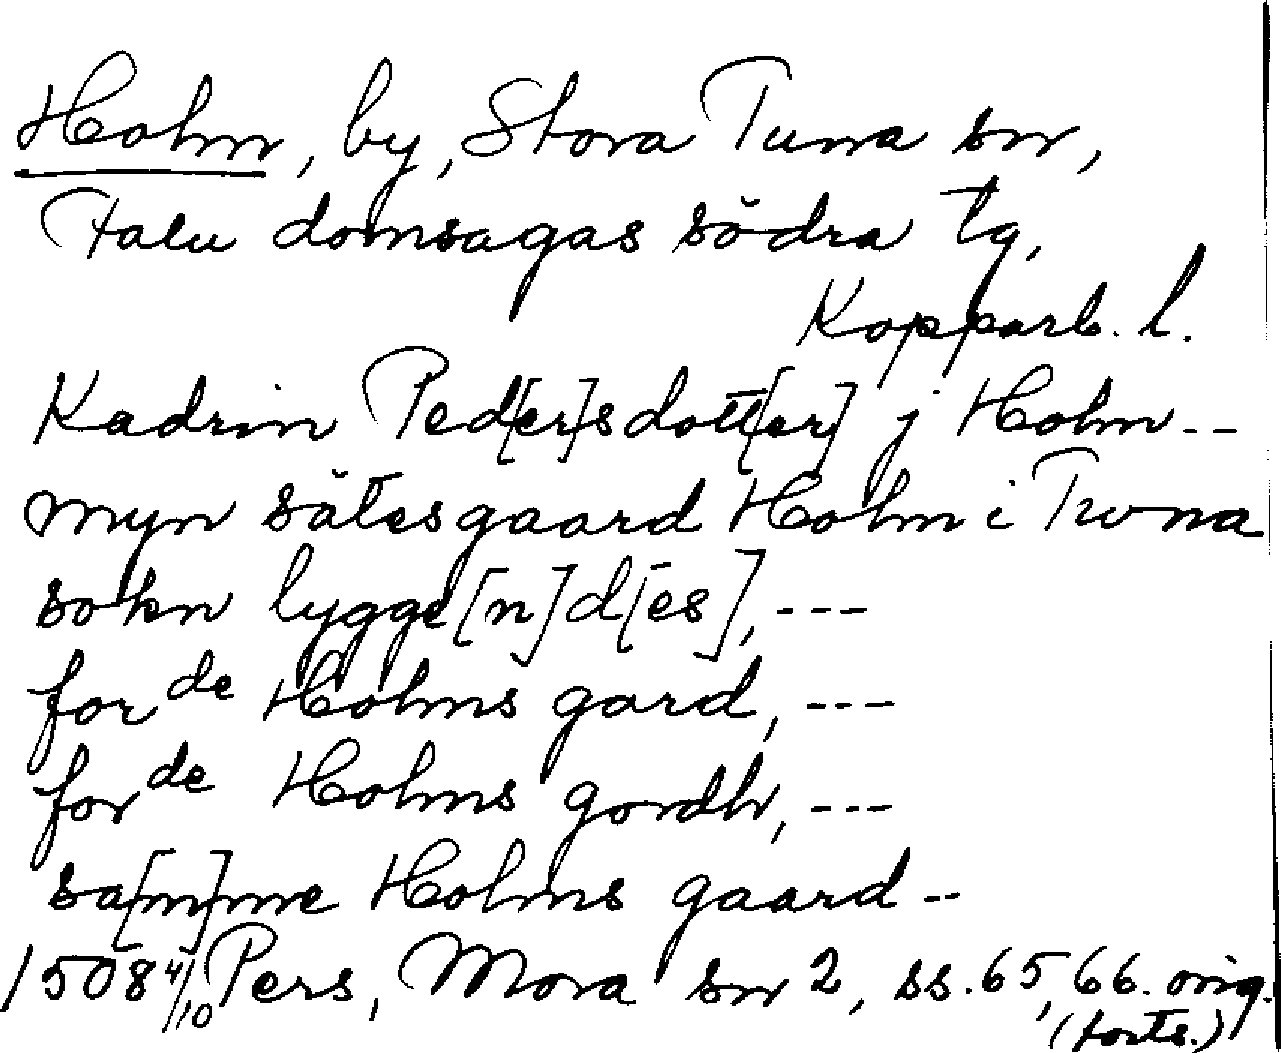 Holm, by, Stora Tuna sn,
Falu domsagas södra tg,
Kopparb. l.
Kadrin Ped[er]sdott[er] j Holm--
myn sätesgaard Holm i Twna
sokn lygge[n]d[es], ---
for de Holms gard, ---
for de Holms gordh, ---
sa[m]me Holms gaard --
1508 4/10 Pers, Mora sn 2, ss. 65, 66. orig.
(forts.)